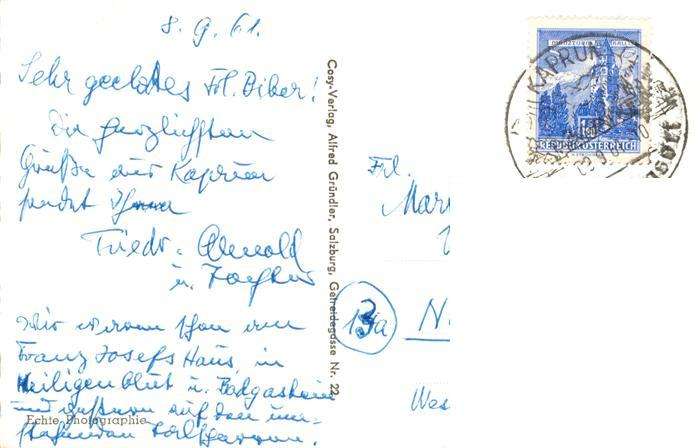 8. 9. 61.
Sehr geehrtes Frl. Biber!
Die herzlichsten
Grüße aus Kaprun
sendet Ihnen
Friedr. Arnold
u. Tochter
Wir waren schon am
Franz Josefs Haus, in
Heiligenblut u. Badgastein
und auf den
Echte Photographie
Cosy-Verlag, Alfred Gründler, Salzburg, Getreidegasse Nr. 22
KAPRUN
REPUBLIK ÖSTERREICH
Frl.
Mar
13a N
Wes